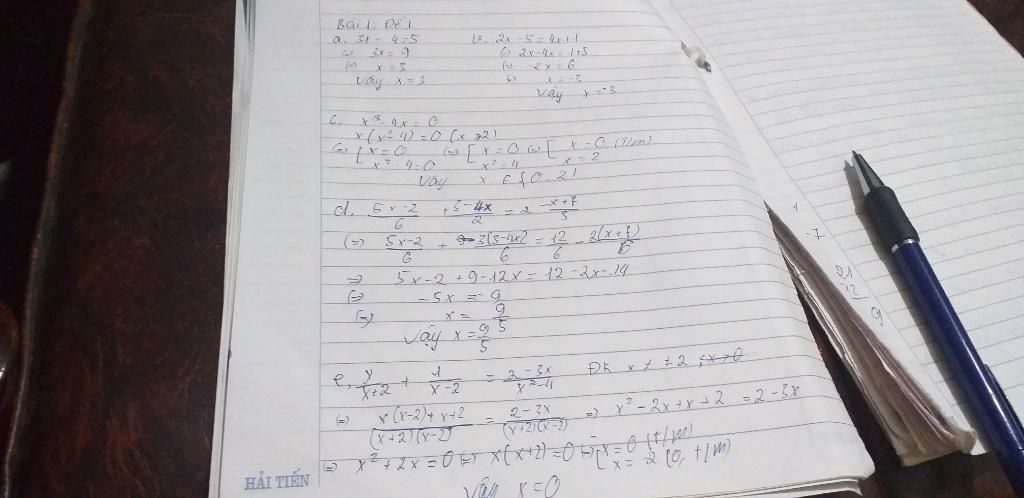 Bài 1. Đề 1
a. 3x - 4 = 5
(=) 3x = 9
(=) x = 3
Vậy x = 3
b. 2x - 5 = 4x + 1
(=) 2x - 4x = 1 + 5
(=) -2x = 6
(=) x = -3
Vậy x = -3
c. x³ - 4x = 0
x(x² - 4) = 0 (x ≥ 2)
(=) [ x = 0 (=) [ x = 0 (=) [ x = 0 (T/m)
x² - 4 = 0 x² = 4 x = 2
Vậy x ∈ {0, 2}
d. 5x - 2 / 6 + 3 - 4x / 2 = 2 - x + 7 / 3
(=) 5x - 2 / 6 + 3(3 - 4x) / 6 = 12 / 6 - 2(x + 7) / 6
=> 5x - 2 + 9 - 12x = 12 - 2x - 14
(=) -5x = -9
(=) x = 9 / 5
Vậy x = 9 / 5
e, x / x + 2 + 1 / x - 2 = 2 - 3x / x² - 4 ĐK x ≠ ± 2
(=) x(x - 2) + x + 2 / (x + 2)(x - 2) = 2 - 3x / (x + 2)(x - 2) => x² - 2x + x + 2 = 2 - 3x
=> x² + 2x = 0 (=) x(x + 2) = 0 (=) [ x = 0 (t/m)
x = -2 (0, t/m)
Vậy x = 0
-7
21
12
9
HẢI TIẾN